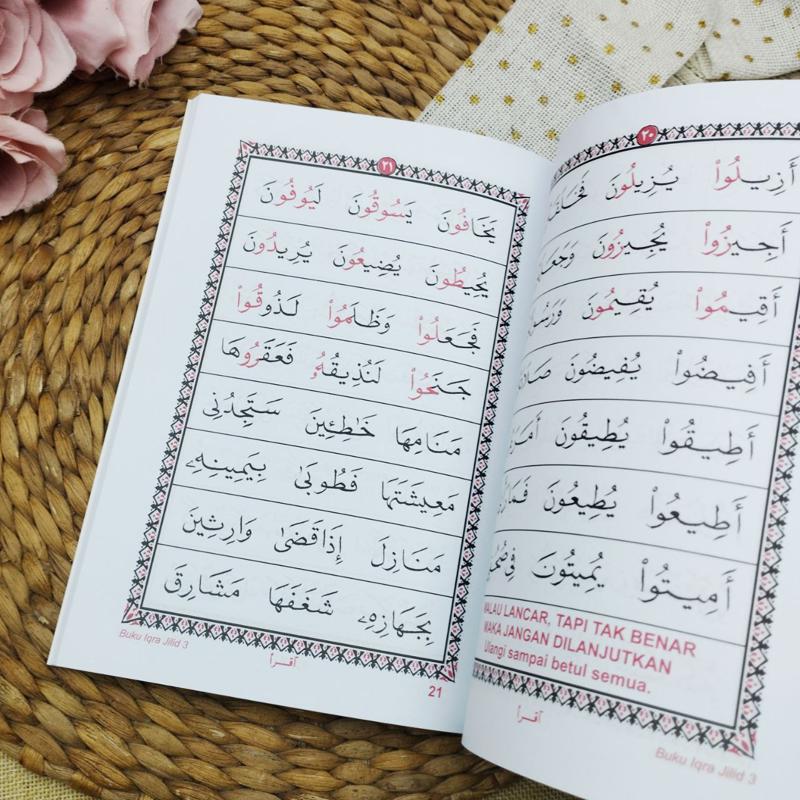 ٢٠
أَزِيلُواْ يُزِيلُونَ
أَجِيزُواْ يُجِيزُونَ
أَقِيمُواْ يُقِيمُونَ
أَفِيضُواْ يُفِيضُونَ
أَطِيقُواْ يُطِيقُونَ
أَطِيعُواْ يُطِيعُونَ
أَمِيتُواْ يُمِيتُونَ
LANCAR, TAPI TAK BENAR
MAKA JANGAN DILANJUTKAN
Ulangi sampai betul semua.
Buku Iqra Jilid 3
٢١
يَخَافُونَ يَسُوقُونَ لَيُوفُونَ
يُحِيطُونَ يُضِيعُونَ يُرِيدُونَ
فَجَعَلُواْ وَظَلَمُواْ لَذُوقُواْ
جَنَحُواْ لَنُذِيقُهُۥ فَعَقَرُوهَا
مَنَامِهَا خَٰطِـِٔينَ سَتَجِدُنِى
مَعِيشَتَهَا فَطُوبَىٰ بِيَمِينِهِۦ
مَنَازِلَ إِذَا قَضَىٰ وَارِثِينَ
بِجَهَازِهِۦ شَغَفَهَا مَشَارِقَ
Buku Iqra Jilid 3
21